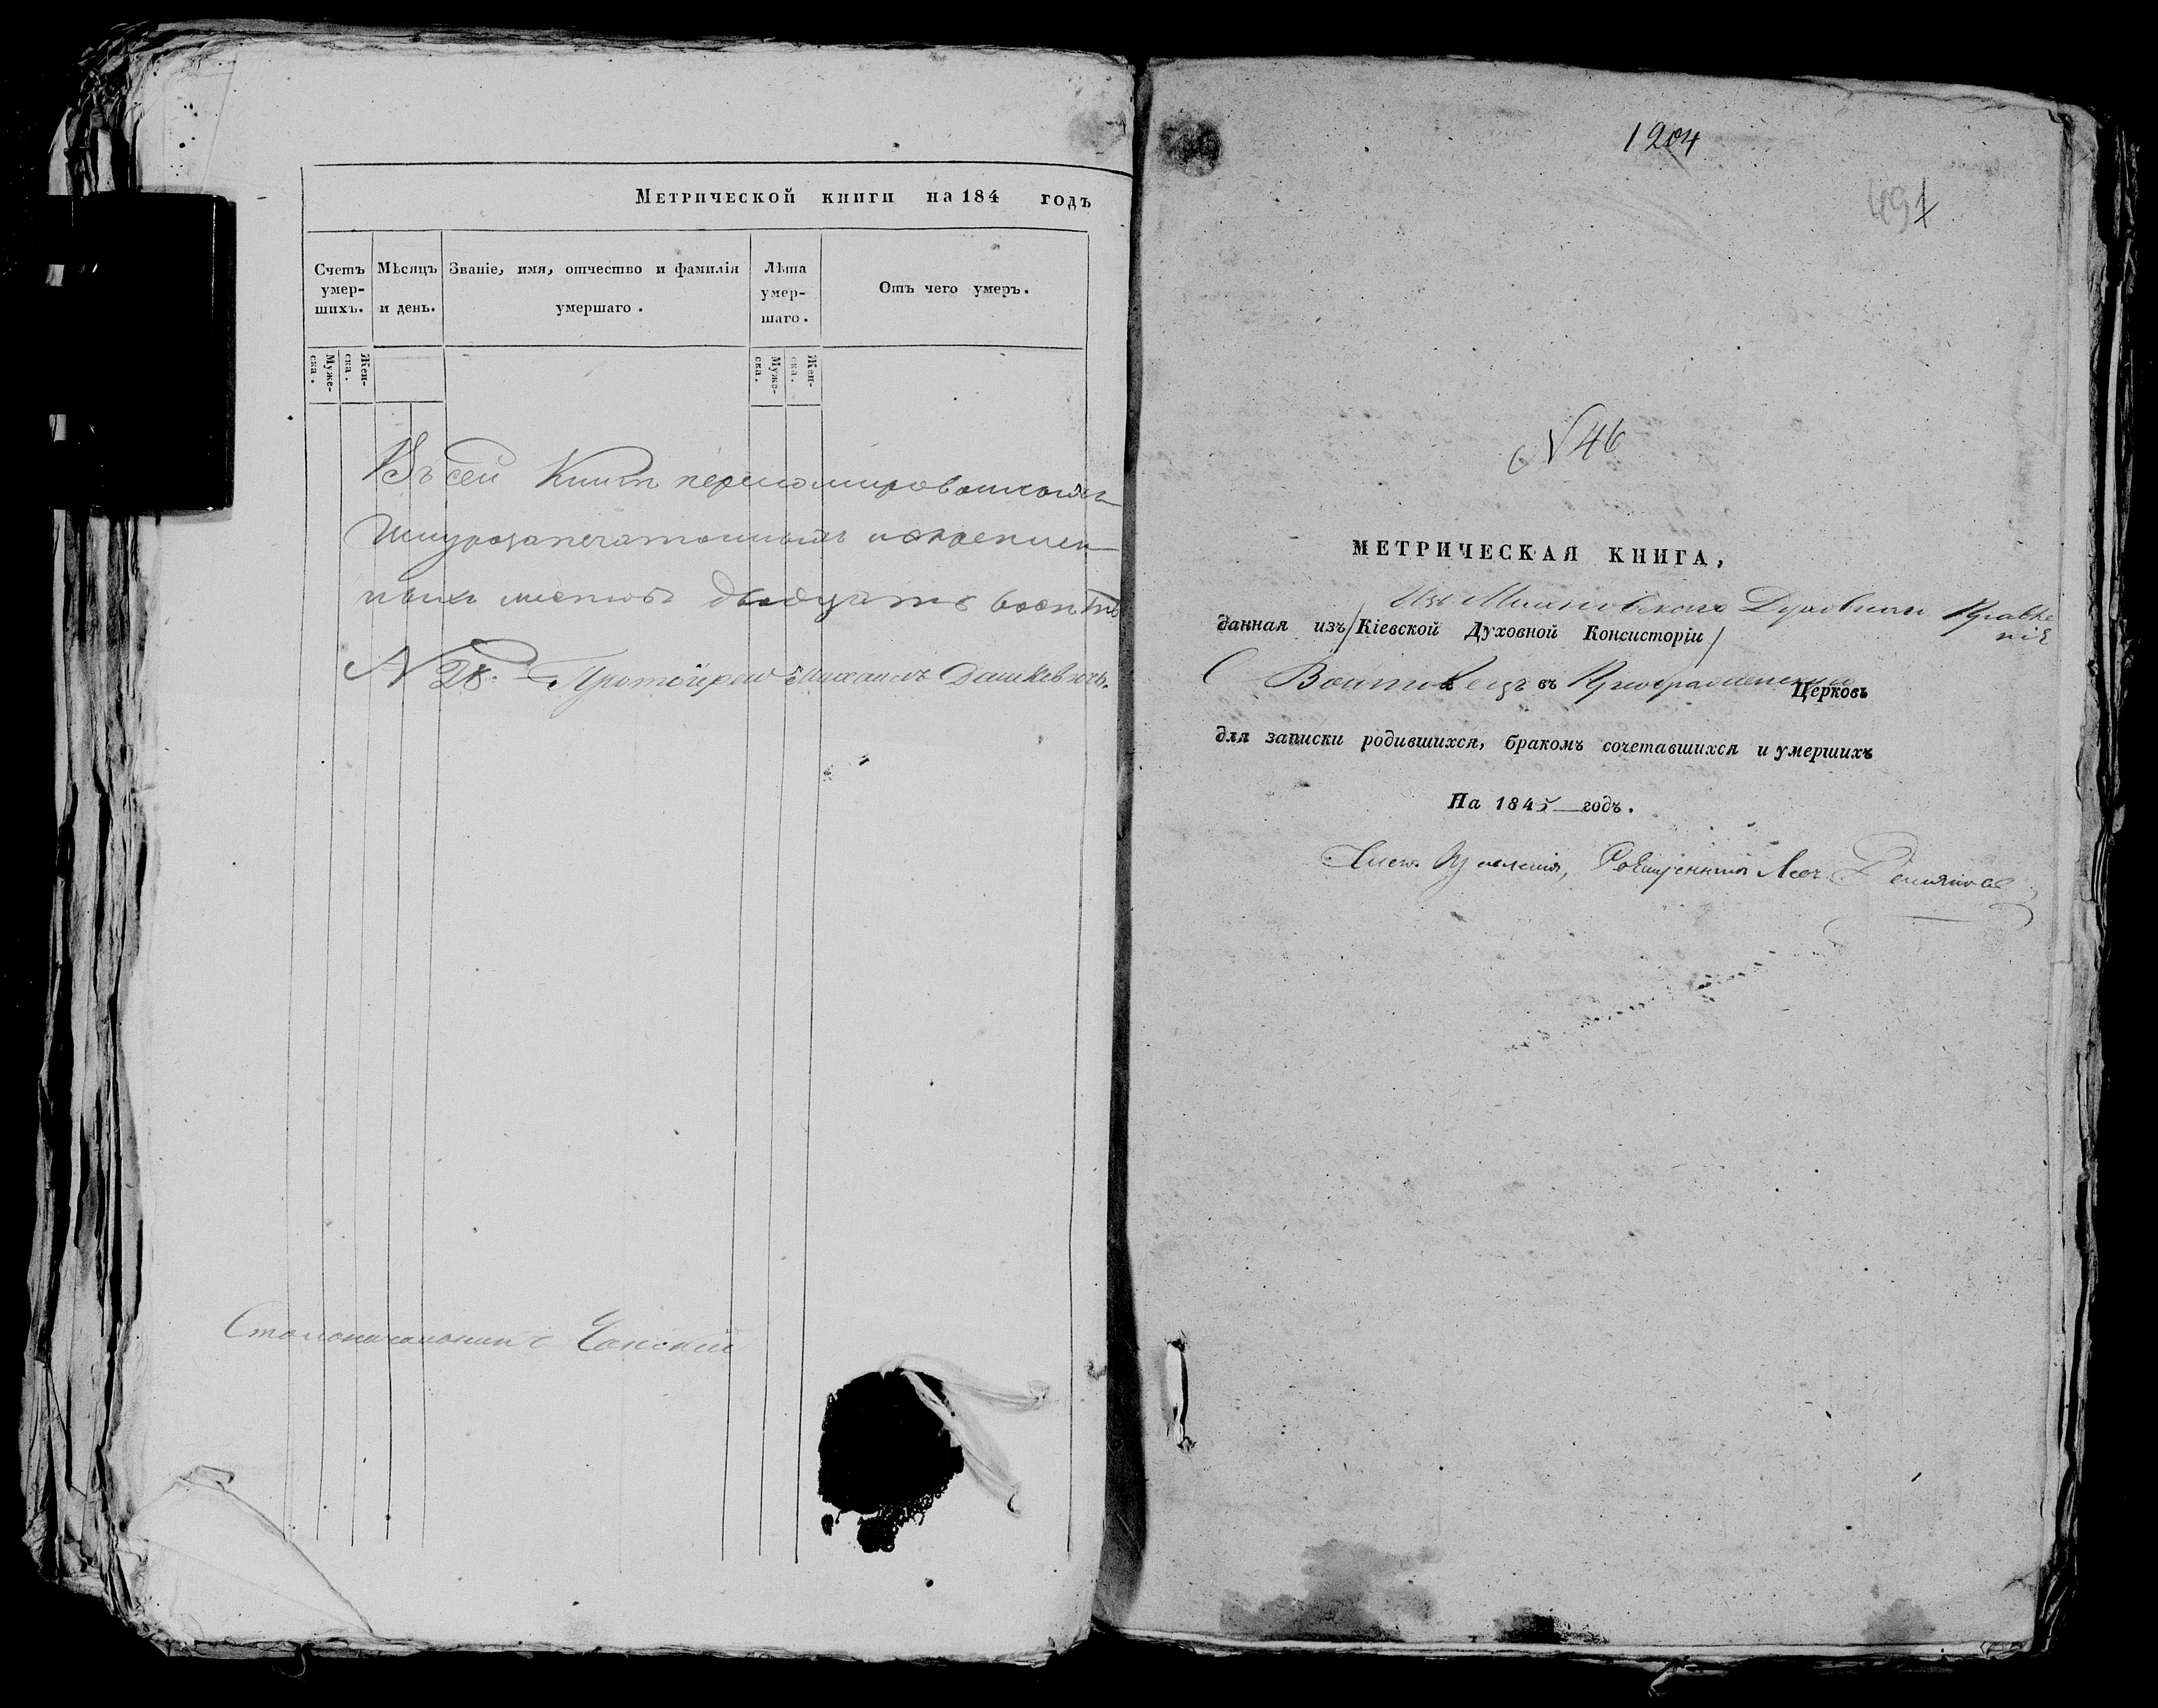 Метрической книги на 184 годъ
Счетъ умер-шихъ.
Мѣсяцъ и день.
Званіе, имя, отчество и фамилія умершаго.
Лѣта умер-шаго.
Отъ чего умеръ.
Муже-ска.
Жен-ска.
Муже-ска.
Жен-ска.
Въ сей Книгѣ перенумерованныхъ
шнурозапечатанныхъ и скрѣплен-
ныхъ листовъ двадцать восемь
N 28. Протоіерей Михаилъ Дашкевичъ.
Столоначальникъ
1204
491
N 46
МЕТРИЧЕСКАЯ КНИГА,
Изъ Духовнаго Правле
нія
данная изъ / Кіевской Духовной Консисторіи /
С Войтовецъ въ Преображенскую Церковь
для записки родившихся, бракомъ сочетавшихся и умершихъ
На 1845 годъ.
Членъ Правленія, Священникъ